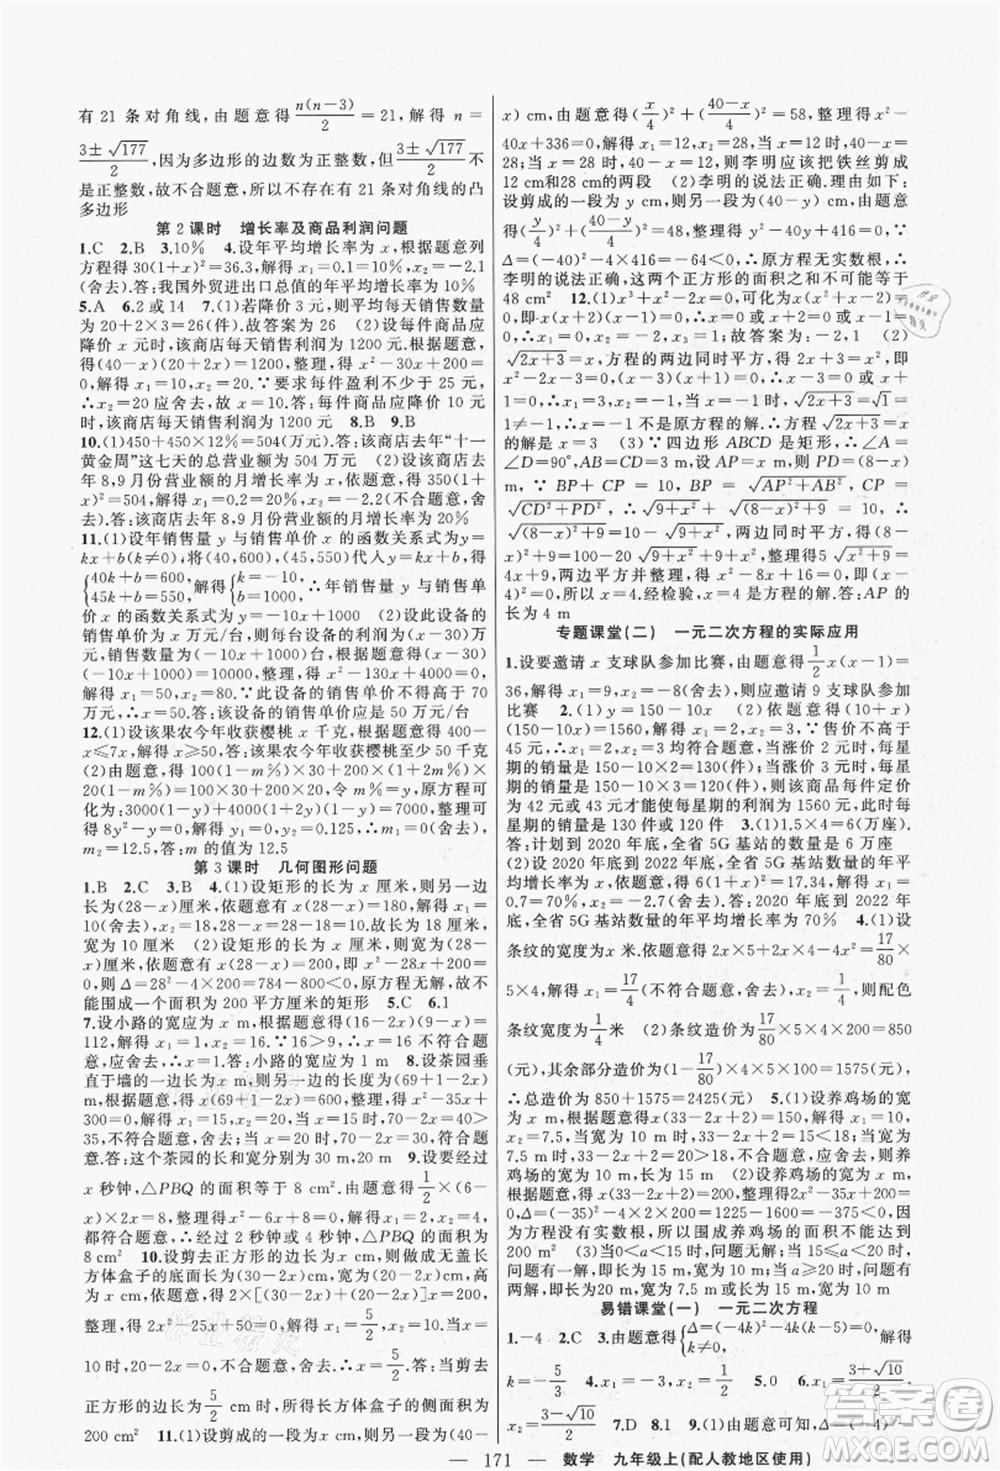 有 21 条对角线,由题意得 n(n−3)/2 = 21,解得 n =
(3±√177)/2,因为多边形的边数为正整数,但 (3±√177)/2 不
是正整数,故不合题意,所以不存在有 21 条对角线的凸
多边形
第 2 课时 增长率及商品利润问题
1.C 2.B 3.10% 4.设年平均增长率为 x,根据题意列
5.A 6.2 或 14 7.(1)若降价 3 元,则平均每天销售数量
为 20+2×3=26.故答案为 26 (2)设每件商品应
降价 x 元时,该商店每天销售利润为 1200 元.根据题意,
得(40−x)(20+2x)=1200,整理,得 x²−30x+200=0,
解得 x₁=10,x₂=20.∵要求每件盈利不少于 25 元,
∴x₂=20 应舍去.∴x=10.答:每件商品应降价 10 元
时,该商店每天销售利润为 1200 元 8.B 9.B
10.(1)450+450×12%=504(万元).答:该商店去年“十一
黄金周”这七天的总营业额为 504 万元 (2)设该商店去
年 8,9 月份营业额的月增长率为 x,依题意,得 350(1+
x)²=504,解得 x₁=0.2=20%,x₂=−2.2(不合题意,舍
去).答:该商店去年 8,9 月份营业额的月增长率为 20%
11.(1)设年销售量 y 与销售单价 x 的函数关系式为 y=
kx+b(k≠0),将(40,600),(45,550)代入 y=kx+b,得
{40k+b=600, 45k+b=550, 解得{k=−10, b=1000, ∴年销售量 y 与销售单
价 x 的函数关系式为 y=−10x+1000 (2)设此设备的
销售单价为 x 万元/台,则每台设备的利润为(x−30)万
元,销售数量为(−10x+1000)台,根据题意,得(x−30)
(−10x+1000)=10000,整理,得 x²−130x+4000=0,
解得 x₁=50,x₂=80.∵此设备的销售单价不得高于 70
万元/台,∴x=50.答:该设备的销售单价应是 50 万元/台
12.(1)设该果农今年收获樱桃 x 千克,根据题意得 400−
x≤7x,解得 x≥50.答:该果农今年收获樱桃至少 50 千克
(2)由题意,得 100(1−m%)×30+200×(1+2m%)×
20(1−m%)=100×30+200×20,令 m%=y,原方程可
化为:3000(1−y)+4000(1+2y)(1−y)=7000,整理可
得 8y²−y=0,解得 y₁=0,y₂=0.125,∴m₁=0(舍去),
m₂=12.5,答:m 的值为 12.5
第 3 课时 几何图形问题
1.B 2.C 3.B 4.(1)设矩形的长为 x 厘米,则另一边长
为(28−x)厘米,依题意有 x(28−x)=180,解得 x₁=10
(舍去),x₂=18,28−x=28−18=10.故长为 18 厘米,
宽为 10 厘米 (2)设矩形的长为 x 厘米,则宽为(28−x)
厘米,依题意有 x(28−x)=200,即 x²−28x+200=0,
则 Δ=28²−4×200=784−800<0,原方程无解,故不
能围成一个面积为 200 平方厘米的矩形 5.C 6.1
7.设小路的宽应为 x m,根据题意得(16−2x)(9−x)=
112,解得 x₁=1,x₂=16.∵16>9,∴x=16 不符合题
意,应舍去,∴x=1.答:小路的宽应为 1 m 8.设茶园垂
直于墙的一边长为 x m,则另一边的长度为(69+1−2x)
m,根据题意,得 x(69+1−2x)=600,整理,得 x²−35x+
300=0,解得 x₁=15,x₂=20.当 x=15 时,70−2x=40>
35,不符合题意,舍去;当 x=20 时,70−2x=30,符合题
意.答:这个茶园的长和宽分别为 30 m,20 m 9.设要经过
x 秒钟,△PBQ 的面积等于 8 cm²,由题意得 1/2×(6−
x)×2x=8,解得 x²−6x+8=0,解得 x₁=2,x₂=4,
都符合题意.答:2 秒钟或 4 秒钟,△PBQ 的面积等于
8 cm² 10.设剪去正方形的边长为 x cm,则做成无盖长
方体盒子的底面长为(30−2x)cm,宽为(20−2x)cm,高
为 x cm,依题意,得 2×[(30−2x)+(20−2x)]x=200,
整理,得 2x²−25x+50=0,解得 x₁=10,x₂=5/2.当 x=
10 时,20−2x=0,不合题意,舍去.∴x=5/2.答:剪去
正方形的边长为 5/2 cm,所得长方体盒子的侧面积为
200 cm² 11.(1)设剪成的较短的一段为 x cm,则另一段为(40−
x) cm,由题意得(x/4)²+((40−x)/4)²=58,整理得 x²−
28;当 x=28 时,40−x=12.则李明应该把铁丝剪成
12 cm 和 28 cm 的两段 (2)李明的说法正确.理由如下:
Δ=(−40)²−4×416=−64<0,∴原方程无实数根,∴
李明的说法正确,这两个正方形的面积之和不可能等于
48 cm² 12.(1)x³+x²−2x=0,可化为 x(x²+x−2)=
0,即 x(x+2)(x−1)=0,∴x=0 或 x+2=0 或 x−1=
0,∴x₁=0,x₂=−2,x₃=1,故答案为:−2,1 (2)
√(2x+3)=x,方程的两边同时平方,得 2x+3=x²,即
x²−2x−3=0,解得 x₁=3,x₂=−1.
∴x=−1 不是原方程的解,∴原方程
的解为 x=3 (3)∵四边形 ABCD 是矩形,∴∠A=
∠D=90°,AB=CD=3 m,设 AP=x m,则 PD=(8−x)
m,∵BP+CP=10,BP=√(AP²+AB²),CP=
√(CD²+PD²),∴√(9+x²)+√((8−x)²+9)=10,∴
√((8−x)²+9)=10−√(9+x²),两边同时平方,得
(8−x)²+9=100−20√(9+x²)+9+x²,
长为 4 m
专题课堂(二) 一元二次方程的实际应用
1.设要邀请 x 支球队参加比赛,由题意得 1/2 x(x−1)=
36,解得 x₁=9,x₂=−8(舍去),则应邀请 9 支球队参加
比赛 2.(1)y=150−10x (2)依题意得(10+x)
(150−10x)=1560,解得 x₁=2,x₂=3,∵售价不高于
45 元,∴x₁=2,x₂=3 均符合题意,当涨价 2 元时,每星
期的销量为 150−10×2=130(件);当涨价 3 元时,每星
期的销量为 150−10×3=120(件),则该商品每件的定
价为 42 或 43 元才能使每星期的利润为 1560 元,此时每星
期的销量为 130 件或 120 件 3.(1)1.5×4=6(万座).
答:计划到 2020 年底,全省 5G 基站的数量为 6 万座
(2)设 2020 年底到 2022 年底,全省 5G 基站数量的年平
均增长率为 x,依题意得 6(1+x)²=17.34,解得 x₁=0.7
=70%,x₂=−2.7(舍去).答:2020 年底到 2022 年
底,全省 5G 基站数量的年平均增长率为 70% 4.(1)设
条纹的宽度为 x 米.依题意得 2x×5+2x×4−4x²=17/80
×5×4,解得 x₁=17/4(不符合题意,舍去),则配色
条纹宽度为 1/4 米 (2)条纹造价为 17/80×5×4×200=850
(元),其余部分造价为(1−17/80)×4×5×100=1575(元),
∴总造价为 850+1575=2425(元) 5.(1)设养鸡场的宽
为 x m,根据题意得 x(33−2x+2)=150,解得 x₁=10,
x₂=7.5,当宽为 10 m 时,33−2x+2=15<18,当宽
为 7.5 m 时,33−2x+2=20>18(舍去),则养鸡场的
宽为 10 m,长为 15 m (2)设养鸡场的宽为 x m,
根据题意得 x(33−2x+2)=200,整理得 2x²−35x+200=
0,Δ=(−35)²−4×2×200=1225−1600=−375<0,
因为方程没有实数根,所以围成养鸡场的面积不能达到
200 m² (3)当 0<a<15 时,问题无解;当 15≤a<20
时,问题有一解,即宽为 10 m,长为 15 m;当 a≥20 时,问题有两
解,即宽为 10 m,长为 15 m 或宽为 7.5 m,长为 20 m
易错课堂(一) 一元二次方程
1.−4 2.C 3.由题意得{Δ=(−4k)²−4k(k−5)=0, k≠0, 解得
k=−5/3 4.1 或 −3/5 5.0 6.x₁=(3+√10)/2,
x₂=(3−√10)/2 7.D 8.1 9.(1)由题意可知,Δ=(−4)²−
171 数学 九年级上(配人教地区使用)